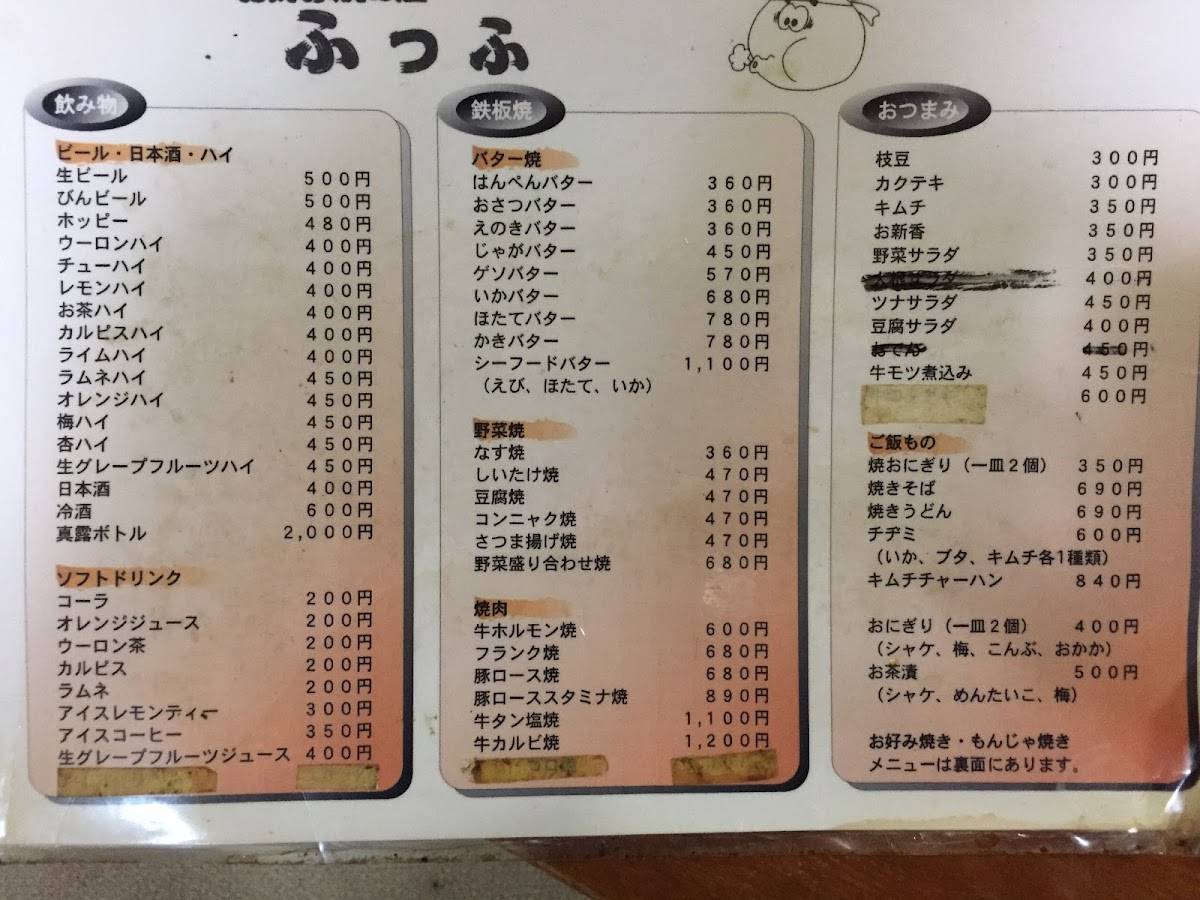 ふっふ
飲み物
ビール・日本酒・ハイ
生ビール 500円
びんビール 500円
ホッピー 480円
ウーロンハイ 400円
チューハイ 400円
レモンハイ 400円
お茶ハイ 400円
カルピスハイ 400円
ライムハイ 400円
ラムネハイ 450円
オレンジハイ 450円
梅ハイ 450円
杏ハイ 450円
生グレープフルーツハイ 450円
日本酒 400円
冷酒 600円
真露ボトル 2,000円
ソフトドリンク
コーラ 200円
オレンジジュース 200円
ウーロン茶 200円
カルピス 200円
ラムネ 200円
アイスレモンティー 300円
アイスコーヒー 350円
生グレープフルーツジュース 400円
鉄板焼
バター焼
はんぺんバター 360円
おさつバター 360円
えのきバター 360円
じゃがバター 450円
ゲソバター 570円
いかバター 680円
ほたてバター 780円
かきバター 780円
シーフードバター 1,100円
（えび、ほたて、いか）
野菜焼
なす焼 360円
しいたけ焼 470円
豆腐焼 470円
コンニャク焼 470円
さつま揚げ焼 470円
野菜盛り合わせ焼 680円
焼肉
牛ホルモン焼 600円
フランク焼 680円
豚ロース焼 680円
豚ローススタミナ焼 890円
牛タン塩焼 1,100円
牛カルビ焼 1,200円
おつまみ
枝豆 300円
カクテキ 300円
キムチ 350円
お新香 350円
野菜サラダ 350円
サラダ 400円
ツナサラダ 450円
豆腐サラダ 400円
おでん 450円
牛モツ煮込み 450円
600円
ご飯もの
焼おにぎり（一皿2個） 350円
焼きそば 690円
焼きうどん 690円
チヂミ 600円
（いか、ブタ、キムチ各1種類）
キムチチャーハン 840円
おにぎり（一皿2個） 400円
（シャケ、梅、こんぶ、おかか）
お茶漬 500円
（シャケ、めんたいこ、梅）
お好み焼き・もんじゃ焼き
メニューは裏面にあります。